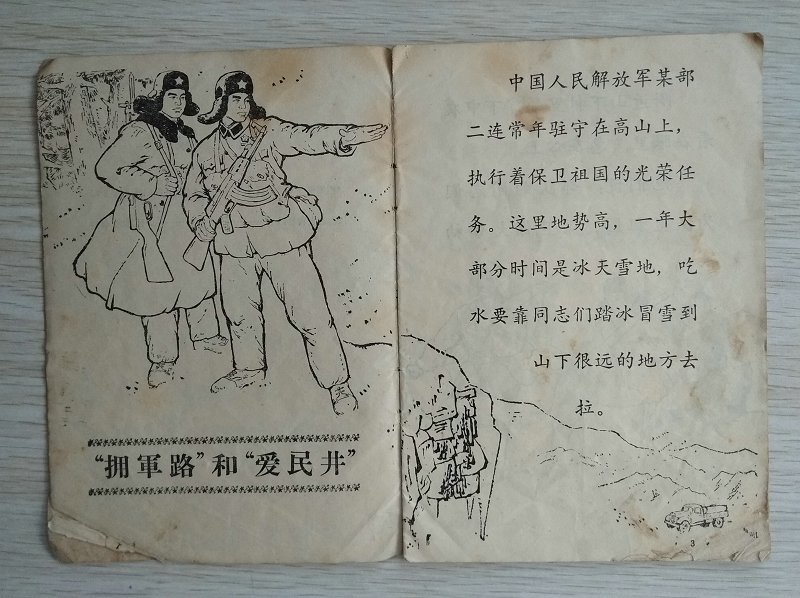 “拥軍路”和“爱民井”
中国人民解放军某部
二连常年驻守在高山上，
执行着保卫祖国的光荣任
务。这里地势高，一年大
部分时间是冰天雪地，吃
水要靠同志们踏冰冒雪到
山下很远的地方去
拉。
3